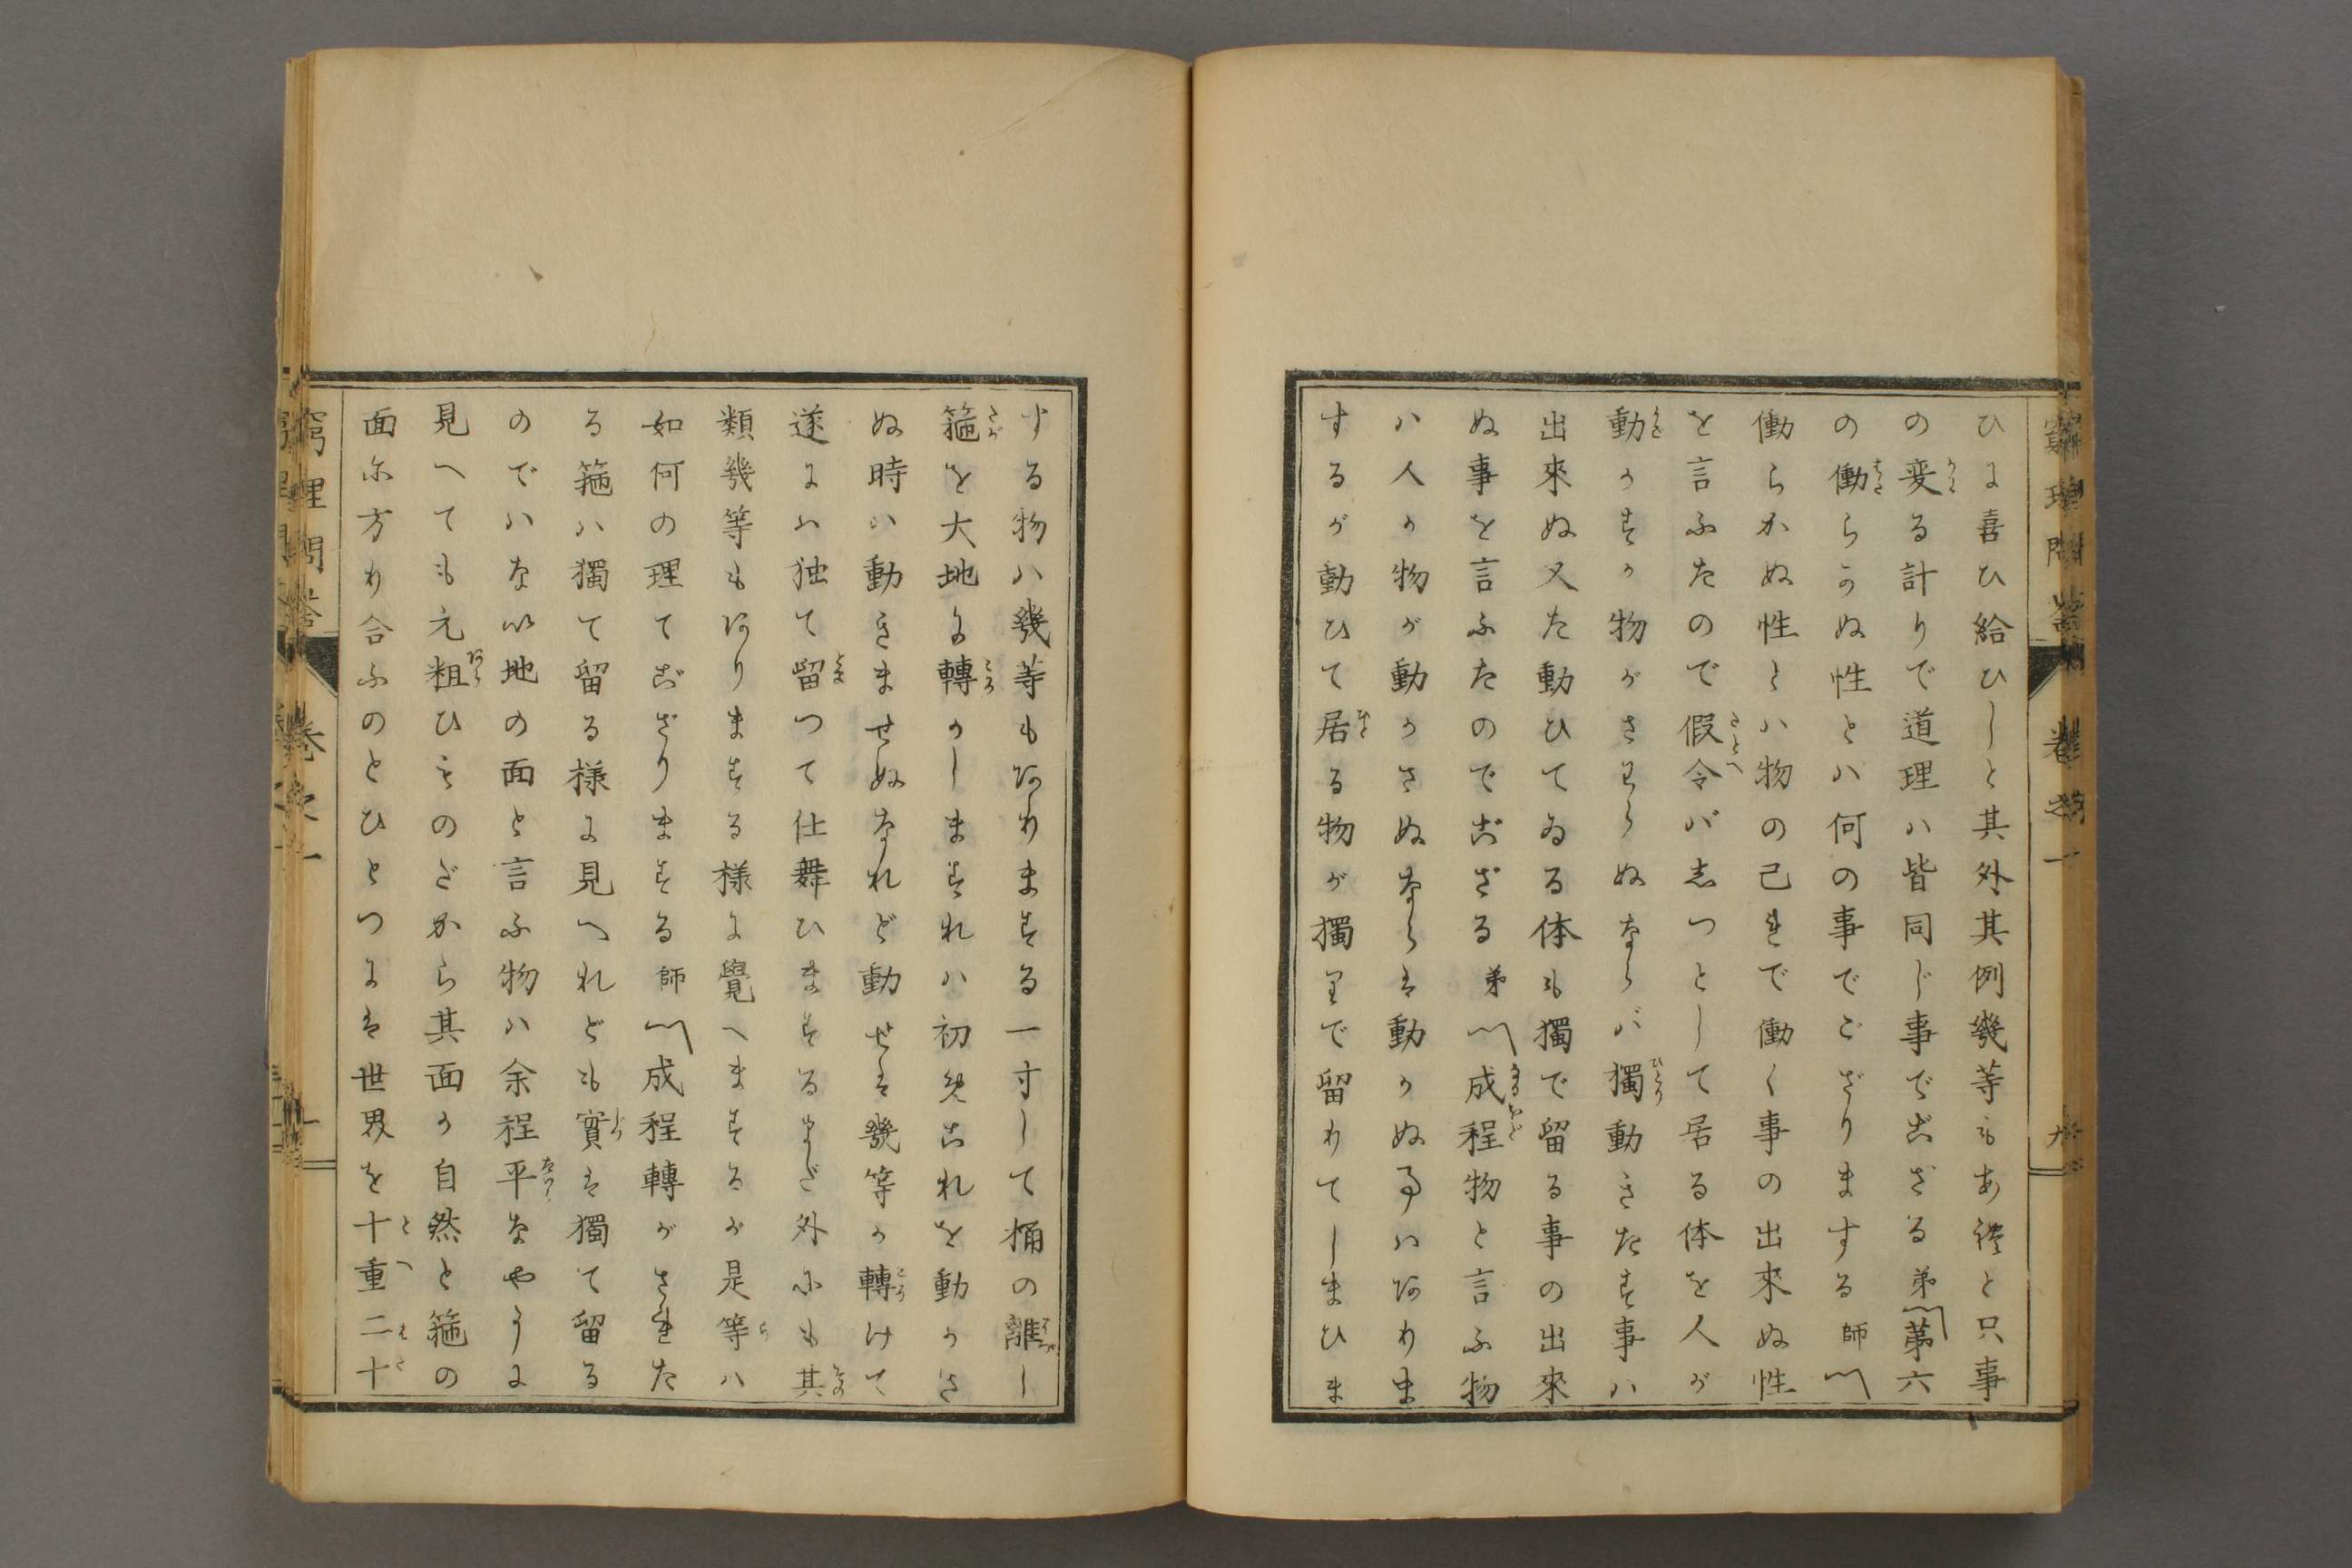 窮理問答 卷之一 九
ひよ喜ひ給ひしと其外其例幾等もあ禮と只事
の変る計りで道理ハ皆同じ事でござる弟〽第六
の働らかぬ性とハ何の事でござりまする師〽
働らかぬ性とハ物の己れで働く事の出來ぬ性
を言ふたので假令バ志つとして居る体を人が
動かすか物がさわらぬならバ獨動きたす事ハ
出來ぬ又た動ひてゐる体も獨で留る事の出來
ぬ事を言ふたのでござる弟〽成程物と言ふ物
ハ人か物が動かさぬならは動かぬ事ハありま
するが動ひて居る物が獨りで留りてしまひま
する物ハ幾等もありまする一寸して桶の離し
箍を大地に轉かしますれハ初めこれを動かさ
ぬ時ハ動きませぬなれど動せは幾等か轉けて
遂よハ独て留つて仕舞ひまするまだ外にも其
類幾等もありまする様よ覺へまするが是等ハ
如何の理てござりまする師〽成程轉がされた
る箍ハ獨て留る様よ見へれども實は獨て留る
のでハない地の面と言ふ物ハ余程平なやうよ
見へても元粗ひものだから其面か自然と箍の
面に方り合ふのとひとつよは世界を十重二十
窮理問答 卷之一